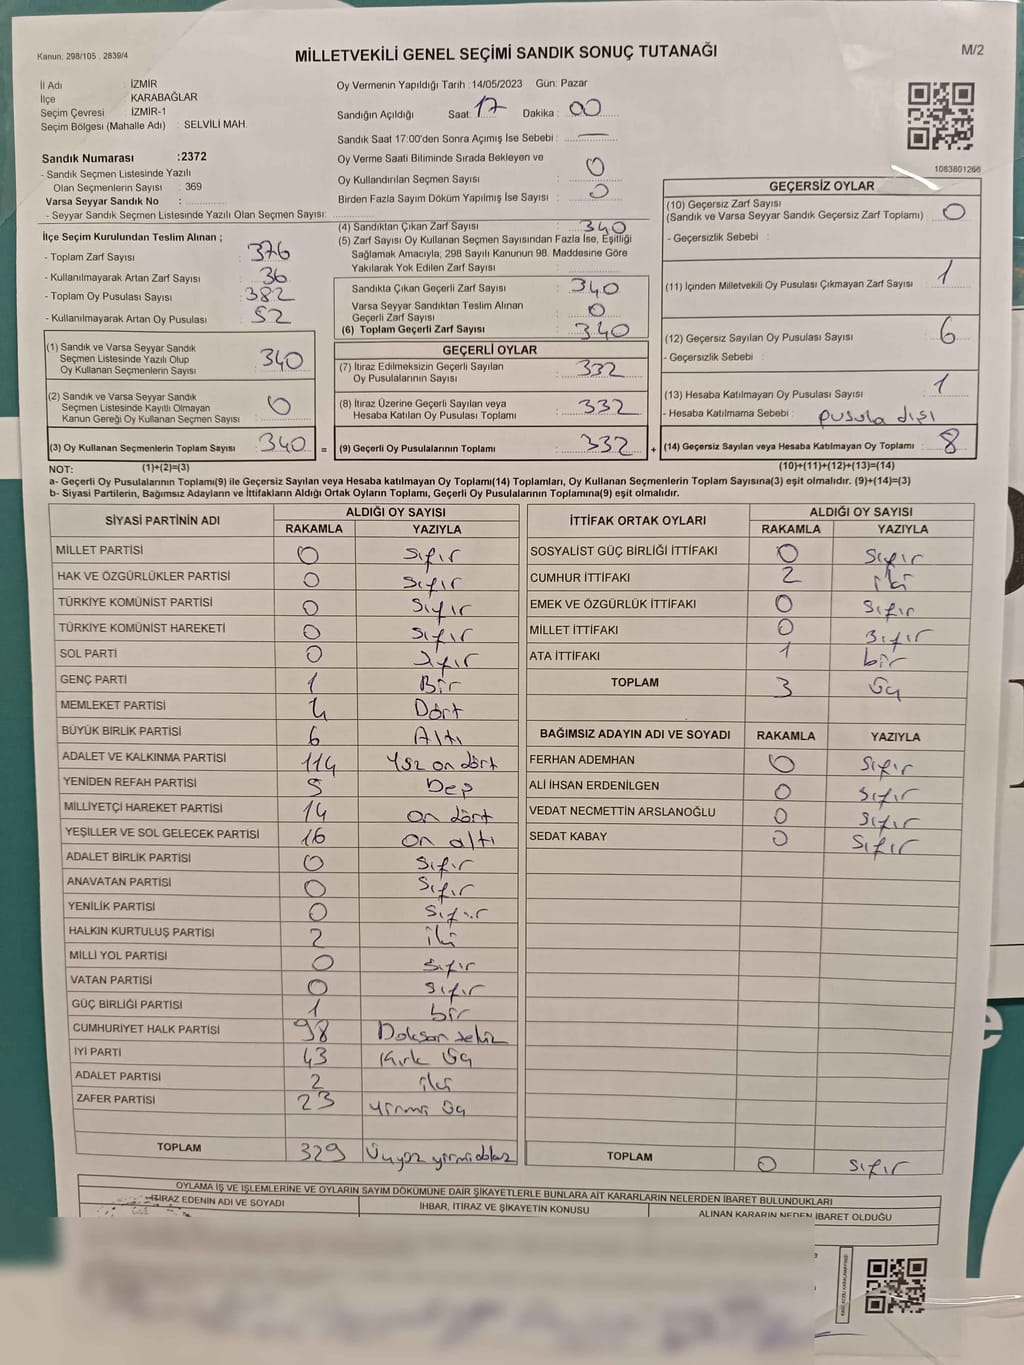 Kanun: 298/105 , 2839/4
MİLLETVEKİLİ GENEL SEÇİMİ SANDIK SONUÇ TUTANAĞI
M/2
İl Adı : İZMİR
İlçe : KARABAĞLAR
Seçim Çevresi : İZMİR-1
Seçim Bölgesi (Mahalle Adı) : SELVİLİ MAH.
Sandık Numarası :2372
- Sandık Seçmen Listesinde Yazılı
Olan Seçmenlerin Sayısı : 369
Varsa Seyyar Sandık No :
- Seyyar Sandık Seçmen Listesinde Yazılı Olan Seçmen Sayısı:
Oy Vermenin Yapıldığı Tarih :14/05/2023 Gün: Pazar
Sandığın Açıldığı Saat: 17 Dakika : 00
Sandık Saat 17:00'den Sonra Açımış İse Sebebi : —
Oy Verme Saati Bitiminde Sırada Bekleyen ve
Oy Kullandırılan Seçmen Sayısı : 0
Birden Fazla Sayım Döküm Yapılmış İse Sayısı : 0
1083801266
İlçe Seçim Kurulundan Teslim Alınan ;
- Toplam Zarf Sayısı : 376
- Kullanılmayarak Artan Zarf Sayısı : 36
- Toplam Oy Pusulası Sayısı : 382
- Kullanılmayarak Artan Oy Pusulası : 52
(1) Sandık ve Varsa Seyyar Sandık
Seçmen Listesinde Yazılı Olup
Oy Kullanan Seçmenlerin Sayısı : 340
(2) Sandık ve Varsa Seyyar Sandık
Seçmen Listesinde Kayıtlı Olmayan
Kanun Gereği Oy Kullanan Seçmen Sayısı : 0
(3) Oy Kullanan Seçmenlerin Toplam Sayısı : 340 =
(4) Sandıktan Çıkan Zarf Sayısı : 340
(5) Zarf Sayısı Oy Kullanan Seçmen Sayısından Fazla İse, Eşitliği
Sağlamak Amacıyla; 298 Sayılı Kanunun 98. Maddesine Göre
Yakılarak Yok Edilen Zarf Sayısı :
Sandıkta Çıkan Geçerli Zarf Sayısı : 340
Varsa Seyyar Sandıktan Teslim Alınan
Geçerli Zarf Sayısı : 0
(6) Toplam Geçerli Zarf Sayısı : 340
GEÇERLİ OYLAR
(7) İtiraz Edilmeksizin Geçerli Sayılan
Oy Pusulalarının Sayısı : 332
(8) İtiraz Üzerine Geçerli Sayılan veya
Hesaba Katılan Oy Pusulası Toplamı : 332
(9) Geçerli Oy Pusulalarının Toplamı : 332 +
GEÇERSİZ OYLAR
(10) Geçersiz Zarf Sayısı
(Sandık ve Varsa Seyyar Sandık Geçersiz Zarf Toplamı) : 0
- Geçersizlik Sebebi :
(11) İçinden Milletvekili Oy Pusulası Çıkmayan Zarf Sayısı : 1
(12) Geçersiz Sayılan Oy Pusulası Sayısı : 6
- Geçersizlik Sebebi :
(13) Hesaba Katılmayan Oy Pusulası Sayısı : 1
- Hesaba Katılmama Sebebi : pusula dışı
(14) Geçersiz Sayılan veya Hesaba Katılmayan Oy Toplamı : 8
NOT: (1)+(2)=(3) (10)+(11)+(12)+(13)=(14)
a- Geçerli Oy Pusulalarının Toplamı(9) ile Geçersiz Sayılan veya Hesaba katılmayan Oy Toplamı(14) Toplamları, Oy Kullanan Seçmenlerin Toplam Sayısına(3) eşit olmalıdır. (9)+(14)=(3)
b- Siyasi Partilerin, Bağımsız Adayların ve İttifakların Aldığı Ortak Oyların Toplamı, Geçerli Oy Pusulalarının Toplamına(9) eşit olmalıdır.
SİYASİ PARTİNİN ADI ALDIĞI OY SAYISI
RAKAMLA YAZIYLA
MİLLET PARTİSİ 0 Sıfır
HAK VE ÖZGÜRLÜKLER PARTİSİ 0 Sıfır
TÜRKİYE KOMÜNİST PARTİSİ 0 Sıfır
TÜRKİYE KOMÜNİST HAREKETİ 0 Sıfır
SOL PARTİ 0 Sıfır
GENÇ PARTİ 1 Bir
MEMLEKET PARTİSİ 4 Dört
BÜYÜK BİRLİK PARTİSİ 6 Altı
ADALET VE KALKINMA PARTİSİ 114 Yüz on dört
YENİDEN REFAH PARTİSİ 5 Beş
MİLLİYETÇİ HAREKET PARTİSİ 14 on dört
YEŞİLLER VE SOL GELECEK PARTİSİ 16 on altı
ADALET BİRLİK PARTİSİ 0 Sıfır
ANAVATAN PARTİSİ 0 Sıfır
YENİLİK PARTİSİ 0 Sıfır
HALKIN KURTULUŞ PARTİSİ 2 iki
MİLLİ YOL PARTİSİ 0 Sıfır
VATAN PARTİSİ 0 Sıfır
GÜÇ BİRLİĞİ PARTİSİ 1 bir
CUMHURİYET HALK PARTİSİ 98 Doksan sekiz
İYİ PARTİ 43 Kırk üç
ADALET PARTİSİ 2 iki
ZAFER PARTİSİ 23 yirmi üç
TOPLAM 329 Üçyüz yirmidokuz
İTTİFAK ORTAK OYLARI ALDIĞI OY SAYISI
RAKAMLA YAZIYLA
SOSYALİST GÜÇ BİRLİĞİ İTTİFAKI 0 Sıfır
CUMHUR İTTİFAKI 2 iki
EMEK VE ÖZGÜRLÜK İTTİFAKI 0 Sıfır
MİLLET İTTİFAKI 0 Sıfır
ATA İTTİFAKI 1 bir
TOPLAM 3 Üç
BAĞIMSIZ ADAYIN ADI VE SOYADI RAKAMLA YAZIYLA
FERHAN ADEMHAN 0 Sıfır
ALİ İHSAN ERDENİLGEN 0 Sıfır
VEDAT NECMETTİN ARSLANOĞLU 0 Sıfır
SEDAT KABAY 0 Sıfır
TOPLAM 0 Sıfır
OYLAMA İŞ VE İŞLEMLERİNE VE OYLARIN SAYIM DÖKÜMÜNE DAİR ŞİKAYETLERLE BUNLARA AİT KARARLARIN NELERDEN İBARET BULUNDUKLARI
İTİRAZ EDENİN ADI VE SOYADI
İHBAR, İTİRAZ VE ŞİKAYETİN KONUSU
ALINAN KARARIN NEDEN İBARET OLDUĞU